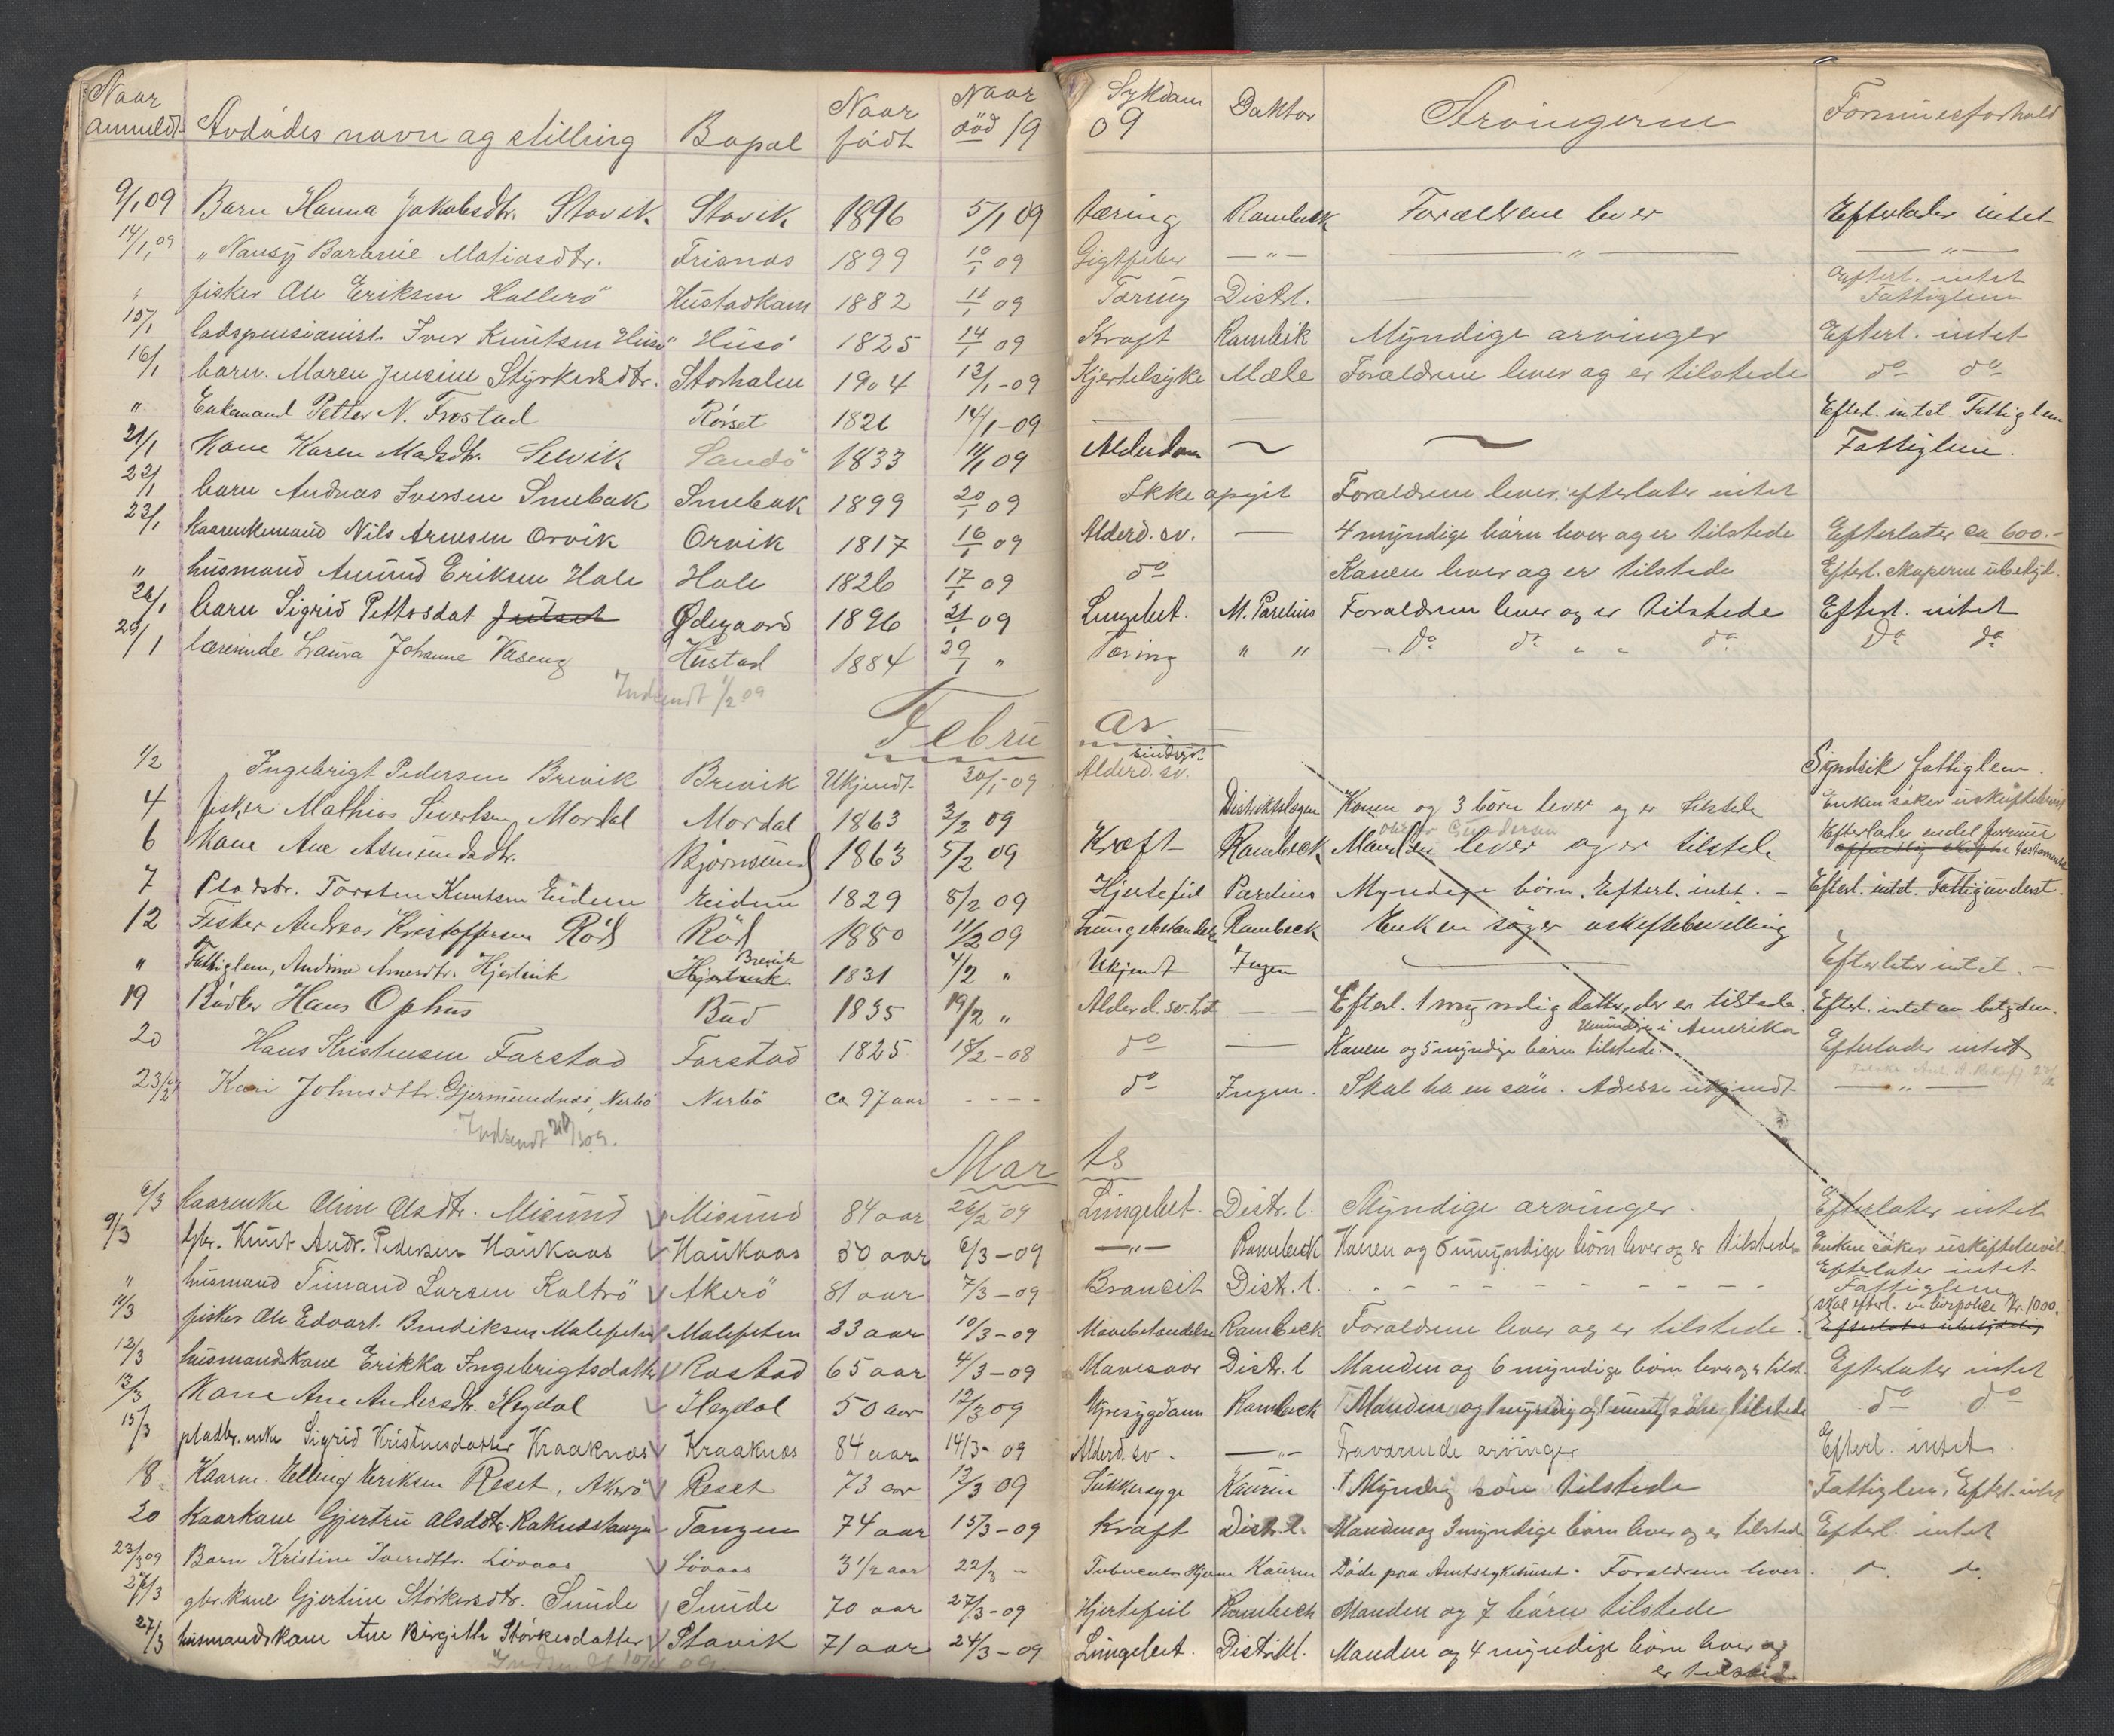 Naar anmeldt Avdødes navn og stilling Bopæl Naar født Naar død 19 09 Sykdom Doktor Arvingerne Formuesforhold
9/1 09 Barn Hanna Jakobsdtr. Stavik Stavik 1896 5/1 09 tæring Rambeck Forældrene lever Efterlader intet
14/1 09 " Nansy Matiasdtr. Frisnes 1899 10/1 09 Gigtfeber — " — — " — — " —
" fisker Ole Eriksen Hallerö Hustadkam 1882 11/1 09 Tæring Distl. Efterl. intet Fattiglem
15/1 Iver Knutsen Husö Husö 1825 14/1 09 Kræft Rambek Myndige arvinger Efterl. intet
16/1 barn. Maren Jensine Styrkersdtr. Storholm 1904 13/1-09 Kjertelsyke Mæle Forældrene lever og er tilstede do do
" Enkemand Petter N. Frostad Rörset 1826 14/1-09 — Efterl. intet. Fattiglem
21/1 Kone Karen Madsdtr. Selvik Sandö 1833 11/1 09 Alderdom ~ ~ Fattiglem.
22/1 barn Andreas Iversen Smebak Smebak 1899 20/1 09 Ikke opgit Forældrene lever. efterlater intet
23/1 kaarenkemand Nils Arnesen Orvik Orvik 1817 16/1 09 Alderd. sv. — 4 myndige börn lever og er tilstede Efterlater ca 600.-
" husmand Amund Eriksen Hole Hole 1826 17/1 09 do Konen lever og er tilstede Efterl. ubetyd.
26/1 barn Sigrid Ødegaard 1896 21/1 09 Lungebet. M. Parelius Forældrene lever og er tilstede Efterl. intet
29/1 lærerinde Laura Johanne Vaseng Hustad 1884 29/1 " Tæring " " do do " " do do do
Indsendt 1/2 09
Februar
1/2 Ingebrigt Pedersen Brevik Brevik Ukjendt 30/1-09 Alderd. sv. sindssyk Syndsik fattiglem.
4 fisker Mathias Sivertsen Mordal Mordal 1863 2/2 09 Distriktslægen Konen og 3 börn lever og er tilstede Enken söker uskiftebevil
6 Kone Ane Asmundsdtr. Björnsund 1863 5/2 09 Kræft Rambeck Manden lever og er tilstede Efterlader endel formue
7 Pladsbr. Torsten Knutsen Eidem Eidem 1829 8/2 09 Hjertefeil Parelius Myndige börn. Efterl. intet. — Efterl. intet. Fattigunderst.
12 Fisker Andreas Kristoffersen Röd Röd 1880 11/2 09 Lungebetændelse Rambeck Enken söger uskiftebevilling
" Fattiglem, Andrine Arnesdtr. Hjertvik Hjertvik Brevik 1831 4/2 " Ukjendt Ingen — Efterlater intet. —
19 Bödker Hans Ophus Bud 1835 19/2 " Alderd. sv. — Efterl. 1 myndig datter, der er tilstede. Efterl. intet av betydn.
20 Hans Kristensen Farstad Farstad 1825 18/2-08 do — Konen og 5 myndige börn tilstede. i Amerika Efterlader intet
23/2 Kari Johnsdttr. Gjermundnes, Nerbö Nerbö ca 97 aar - - - - do Ingen. Skal ha en sön. Adresse ukjendt — " —
Indsendt
Marts
6/3 kaarenke Olsdtr. Misund Misund 84 aar 26/2 09 Lungebet. Distr. l. Myndige arvinger. Efterlater intet
9/3 gbr. Knut Andr. Pedersen Haukaas Haukaas 50 aar 6/3-09 — " — Rambeck Konen og 6 umyndige börn lever og er tilstede Enken söker uskiftebevil-
" husmand Timand Larsen Kaltrö Akerö 81 aar 7/3-09 Broncit Distr. l. - - - - Efterlater intet Fattiglem
11/3 fisker Ole Edvart Bendiksen Malefeten Malefeten 23 aar 10/3-09 Mavebetændelse Rambeck Forældrene lever og er tilstede. skal efterl. en livspolice Kr. 1000. Efterlater ubetydelig
12/3 husmandskone Erikka Ingebrigtsdatter Rostad 65 aar 4/3-09 Mavesaar Distr. l Manden og 6 myndige börn lever og er tilst. Efterlater intet
13/3 Kone Ane Andersdtr. Hegdal Hegdal 50 aar 12/3 09 Nyresygdom Rambeck Manden og 1 myndig og 1 umynd sön tilstede do do
15/3 pladbr. enke Sigrid Kristensdatter Kraaknes Kraaknes 84 aar 14/3-09 Alderd. sv. — " — Fraværende arvinger Efterl. intet.
18 Kaarm. Elling Eriksen Reset, Akerö Reset 73 aar 13/3 09 Sukkersyge Kaurin 1 Myndig sön tilstede Fattiglem, Efterl. intet
20 Kaarkone Gjertru Olsdtr. Raknestangen Tangen 74 aar 15/3-09 Kræft Distr. l. Manden og 3 myndige börn lever og er tilstede Efterl. intet
23/3 09 Barn Kristine Iversdttr. Lövaas Lövaas 3 1/2 aar 22/3 - Kaurin Döde paa Amtssykehuset. Forældrene lever. do do
27/3 gbr. kone Gjertine Störkersdtr. Sunde Sunde 70 aar 27/3-09 Hjertefeil Rambech Manden og 7 börn tilstede
27/3 husmandskone Ane Birgitte Störkersdatter Stavik 71 aar 24/3-09 Lungebet. Distrikl. Manden og 4 myndige börn lever og er tilsted